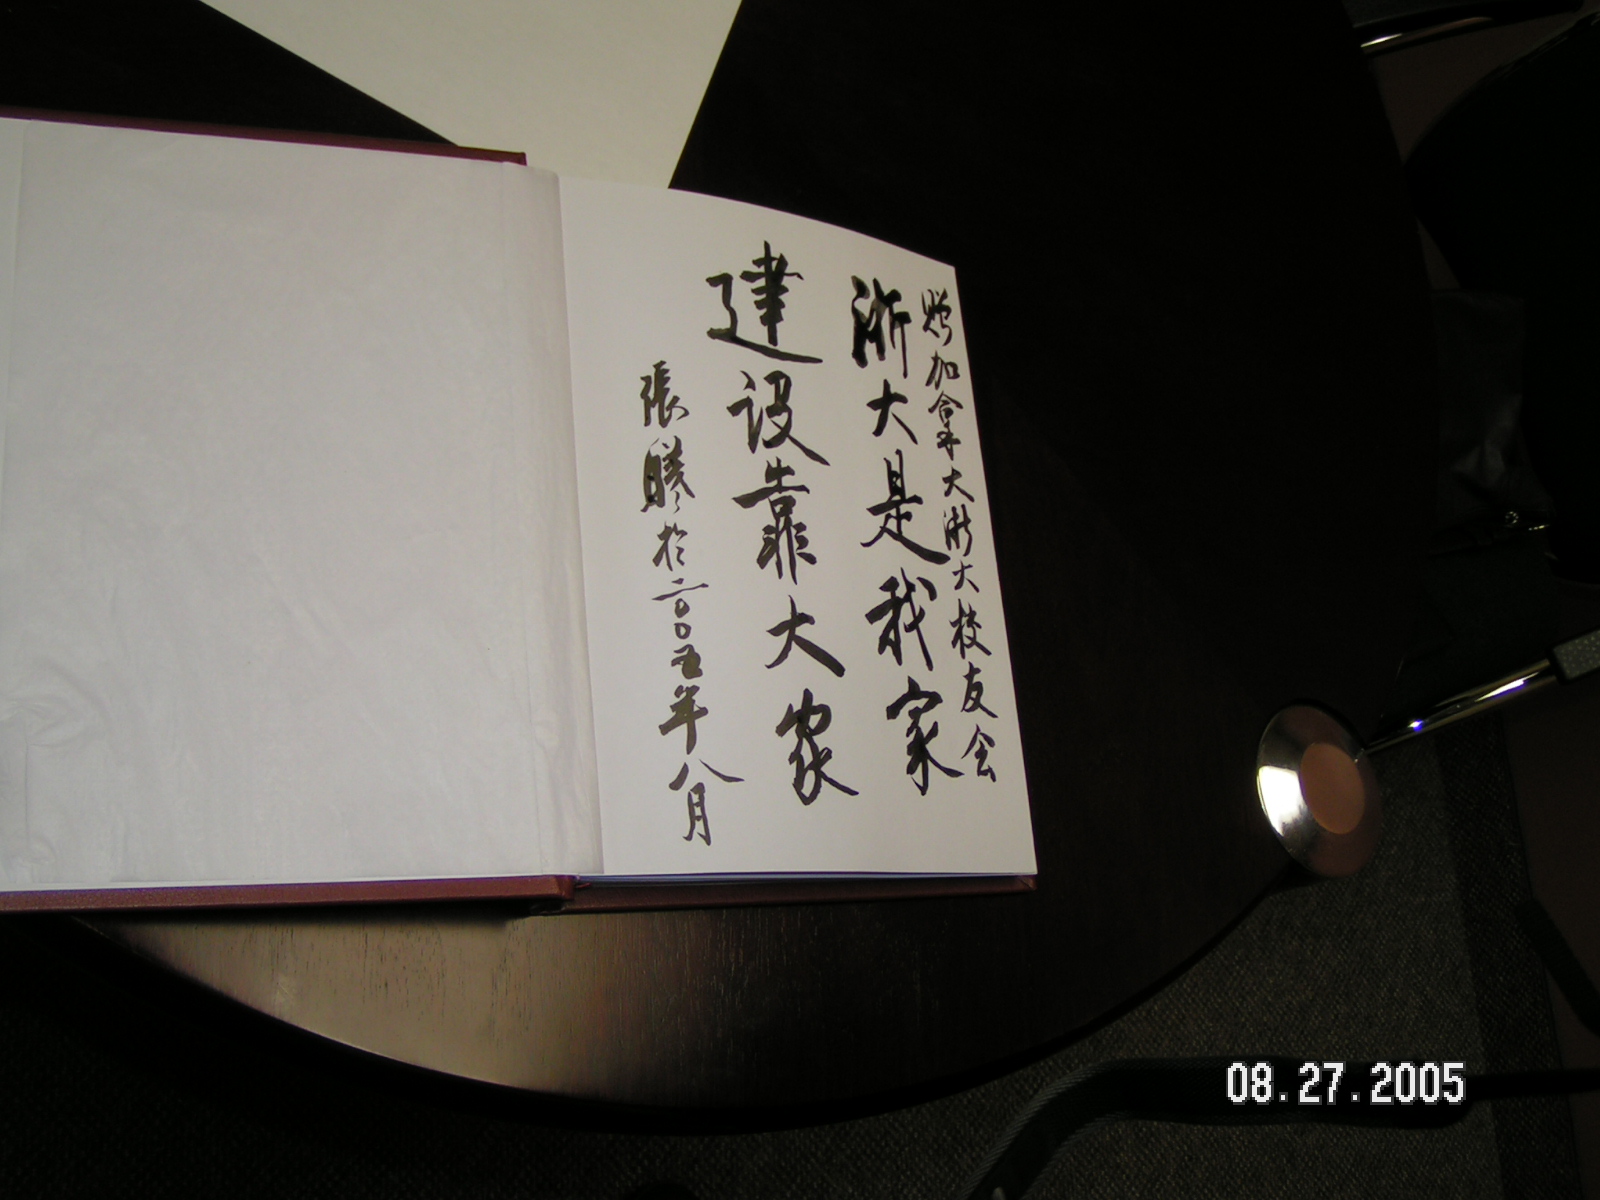 赠加拿大浙大校友会
浙大是我家
建设靠大家
張曦於二〇〇五年八月
08.27.2005